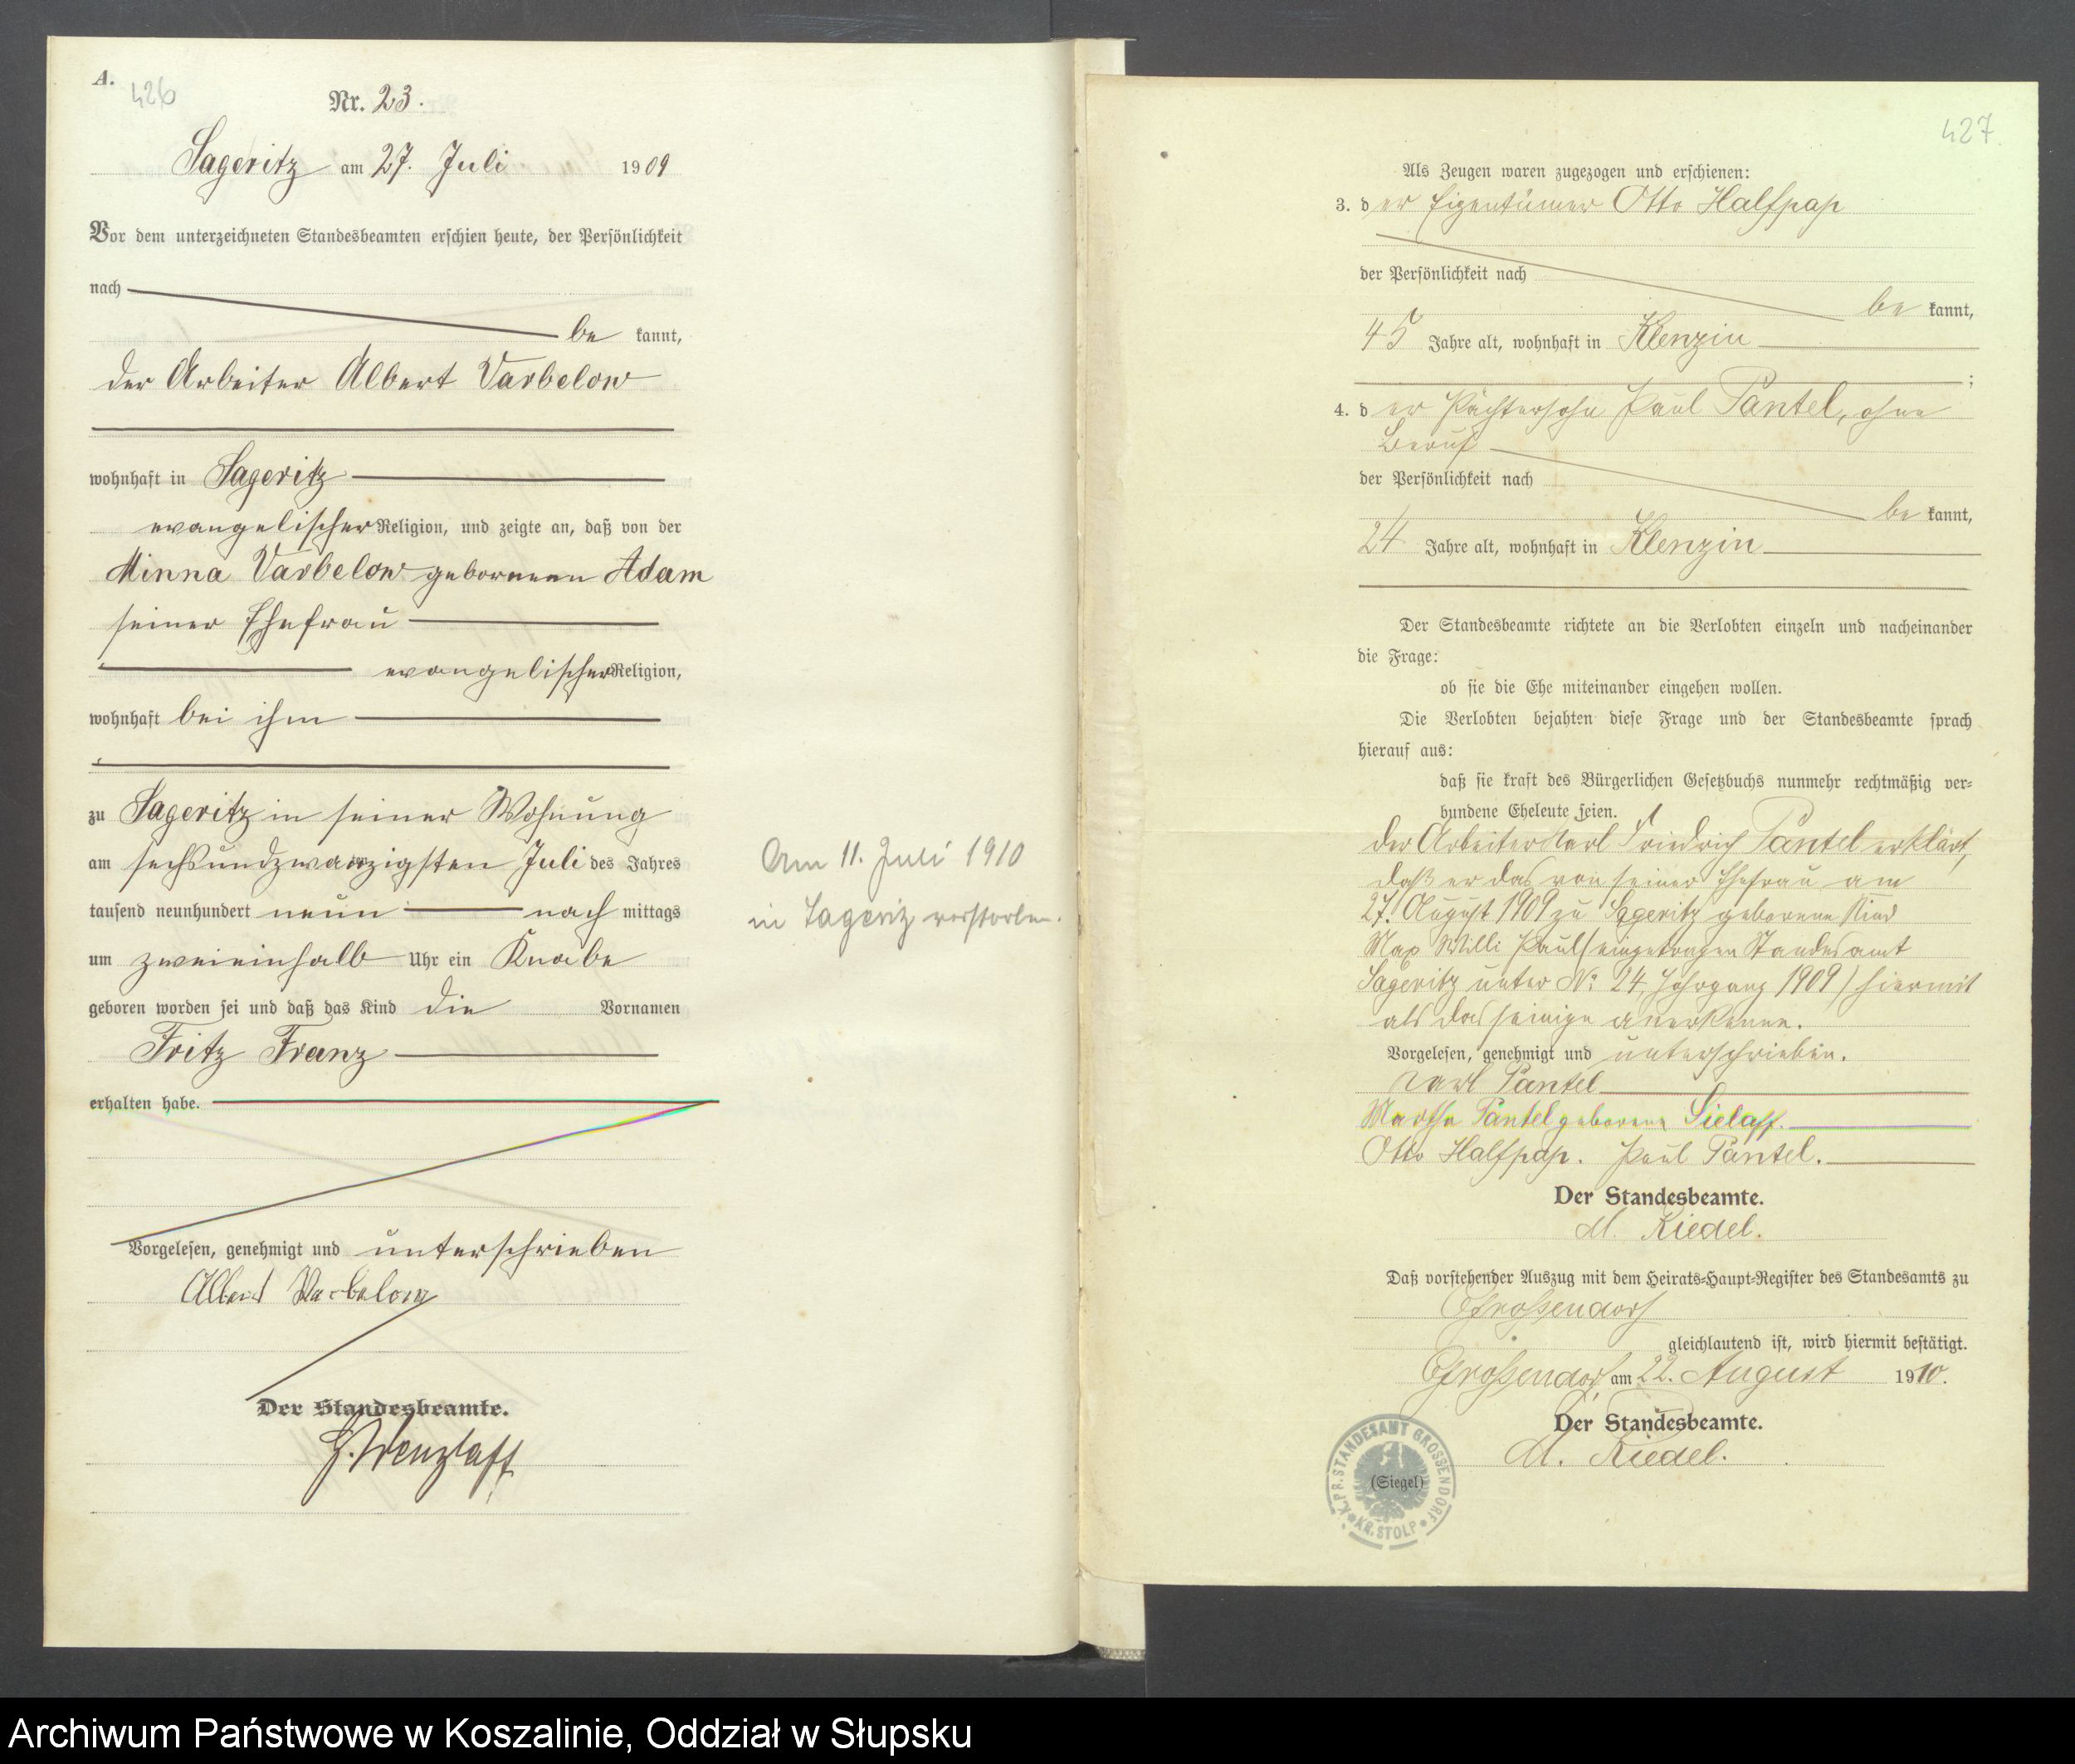 A.
426
Nr. 23.
Sageritz am 27. Juli 1909
Vor dem unterzeichneten Standesbeamten erschien heute, der Persönlichkeit
nach
be kannt,
der Arbeiter Albert Varbelow
wohnhaft in Sageritz
evangelischer Religion, und zeigte an, daß von der
Minna Varbelow geborenen Adam
seiner Ehefrau
evangelischer Religion,
wohnhaft bei ihm
zu Sageritz in seiner Wohnung
am sechsundzwanzigsten Juli des Jahres
tausend neunhundert neun nach mittags
um zweieinhalb Uhr ein Knabe
geboren worden sei und daß das Kind die Vornamen
Fritz Franz
erhalten habe.
Vorgelesen, genehmigt und unterschrieben
Albert Varbelow
Der Standesbeamte.
H. Wenzlaff
Am 11. Juli 1910
in Sageritz verstorben.
427
Als Zeugen waren zugezogen und erschienen:
3. der Eigentümer Otto Halfpap
der Persönlichkeit nach
be kannt,
45 Jahre alt, wohnhaft in Klenzin
;
4. der Pächtersohn Paul Pantel, ohne
Beruf
der Persönlichkeit nach
be kannt,
24 Jahre alt, wohnhaft in Klenzin
Der Standesbeamte richtete an die Verlobten einzeln und nacheinander
die Frage:
ob sie die Ehe miteinander eingehen wollen.
Die Verlobten bejahten diese Frage und der Standesbeamte sprach
hierauf aus:
daß sie kraft des Bürgerlichen Gesetzbuchs nunmehr rechtmäßig ver-
bundene Eheleute seien.
Der Arbeiter Karl Friedrich Pantel erklärt,
daß er das von seiner Ehefrau am
27. August 1909 zu Sageritz geborene Kind
Max Willi Paul (eingetragen Standesamt
Sageritz unter No. 24, Jahrgang 1909) hiermit
als das seinige anerkenne.
Vorgelesen, genehmigt und unterschrieben.
Karl Pantel
Martha Pantel geborene Sielaff.
Otto Halfpap. Paul Pantel.
Der Standesbeamte.
M. Riedel.
Daß vorstehender Auszug mit dem Heirats-Haupt-Register des Standesamts zu
Großendorf
gleichlautend ist, wird hiermit bestätigt.
Großendorf, am 22. August 1910.
Der Standesbeamte.
M. Riedel.
(Siegel)
K. PR. STANDESAMT GROSSENDORF
KR. STOLP
Archiwum Państwowe w Koszalinie, Oddział w Słupsku